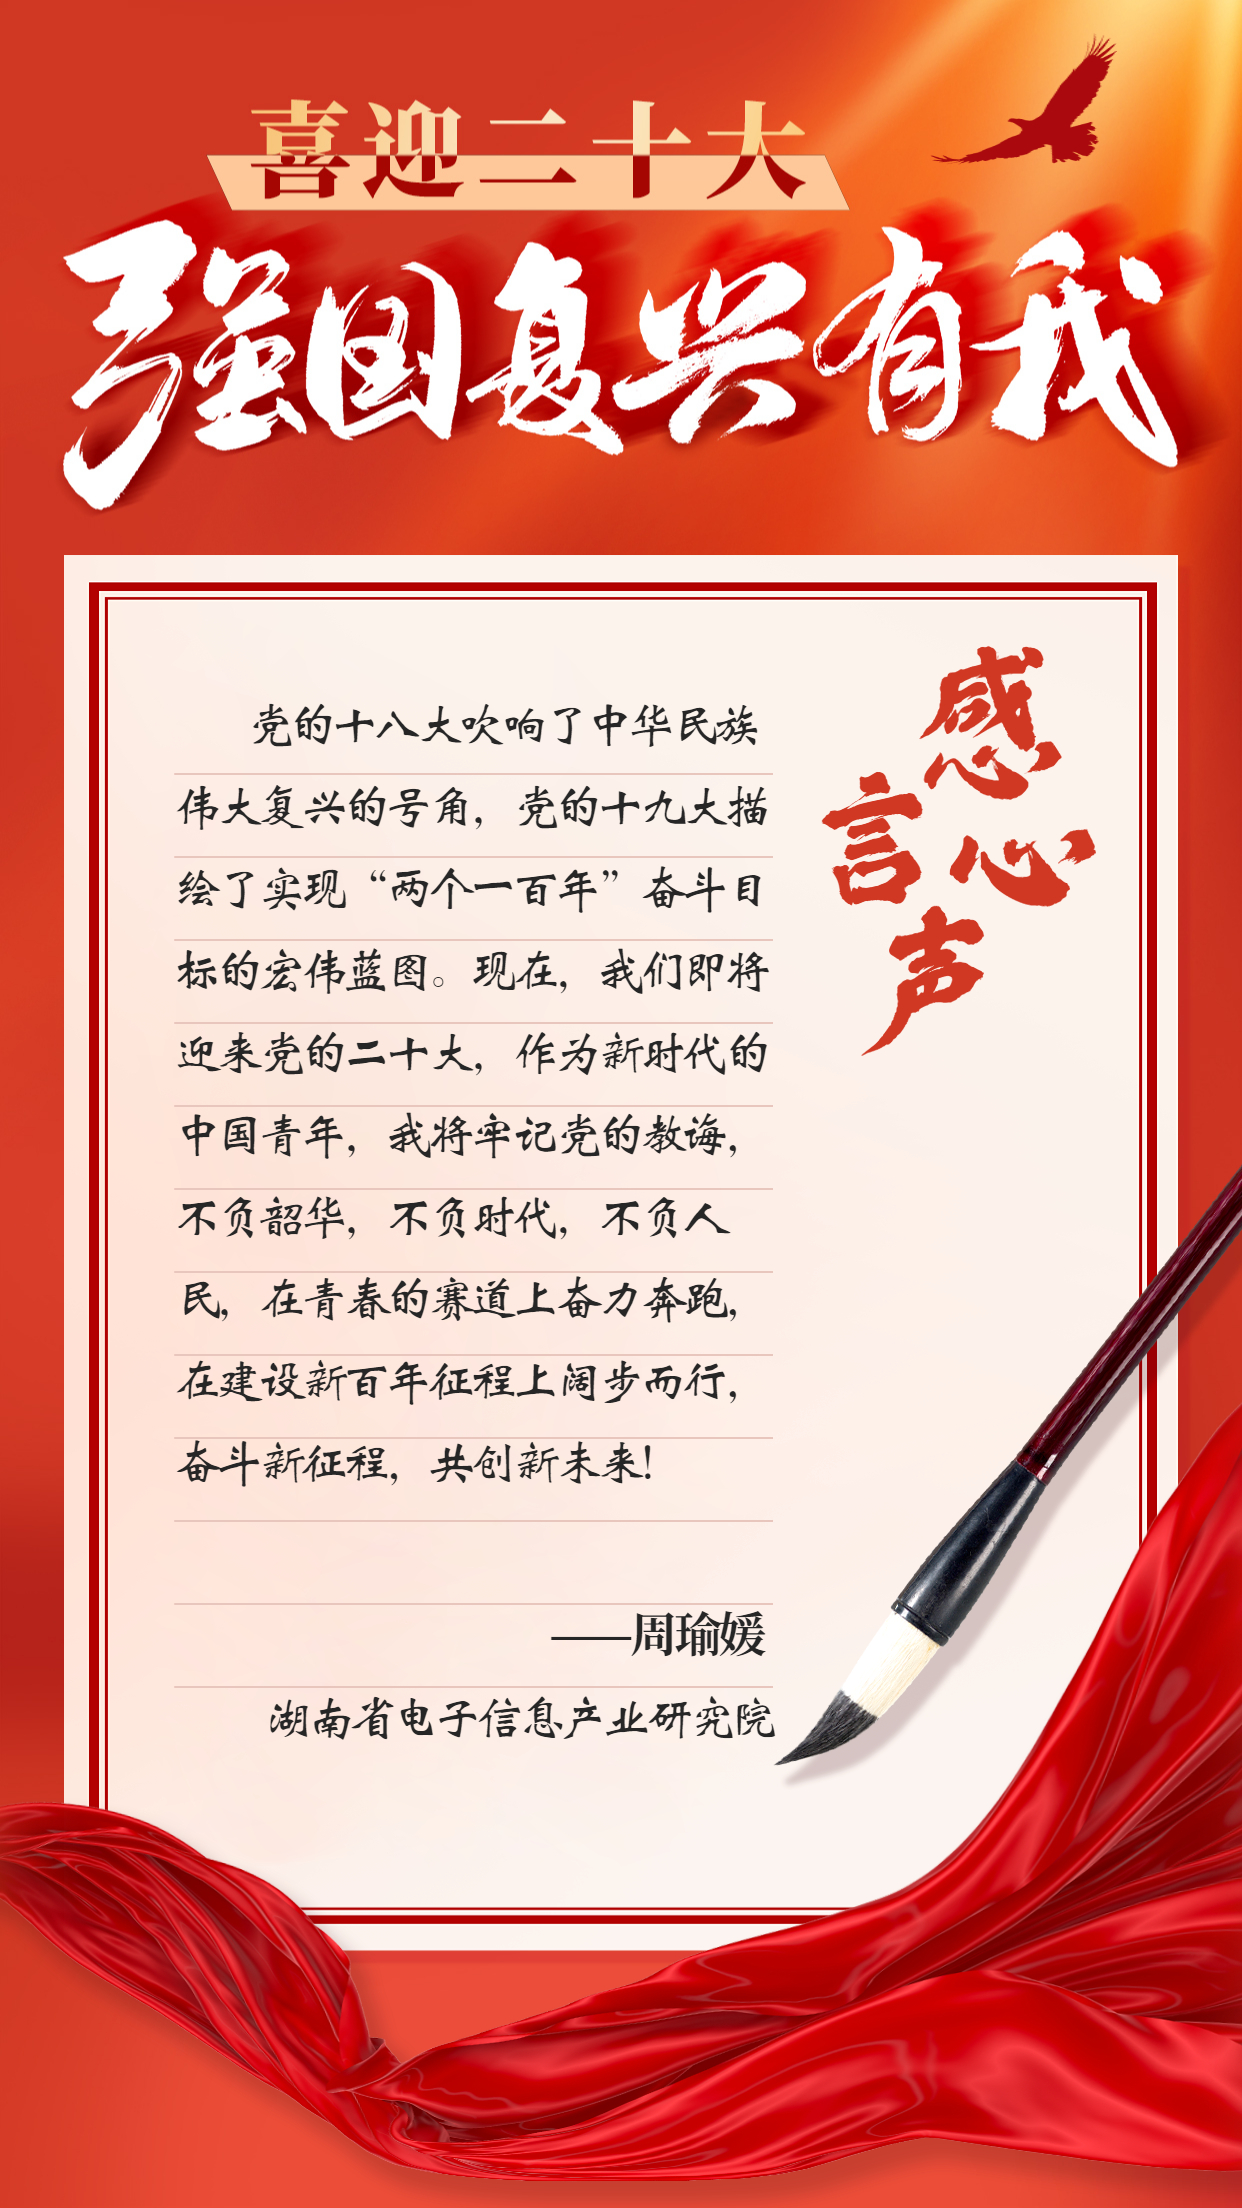 喜迎二十大
强国复兴有我
感心
言声
党的十八大吹响了中华民族
伟大复兴的号角，党的十九大描
绘了实现“两个一百年”奋斗目
标的宏伟蓝图。现在，我们即将
迎来党的二十大，作为新时代的
中国青年，我将牢记党的教诲，
不负韶华，不负时代，不负人
民，在青春的赛道上奋力奔跑，
在建设新百年征程上阔步而行，
奋斗新征程，共创新未来！
——周瑜媛
湖南省电子信息产业研究院